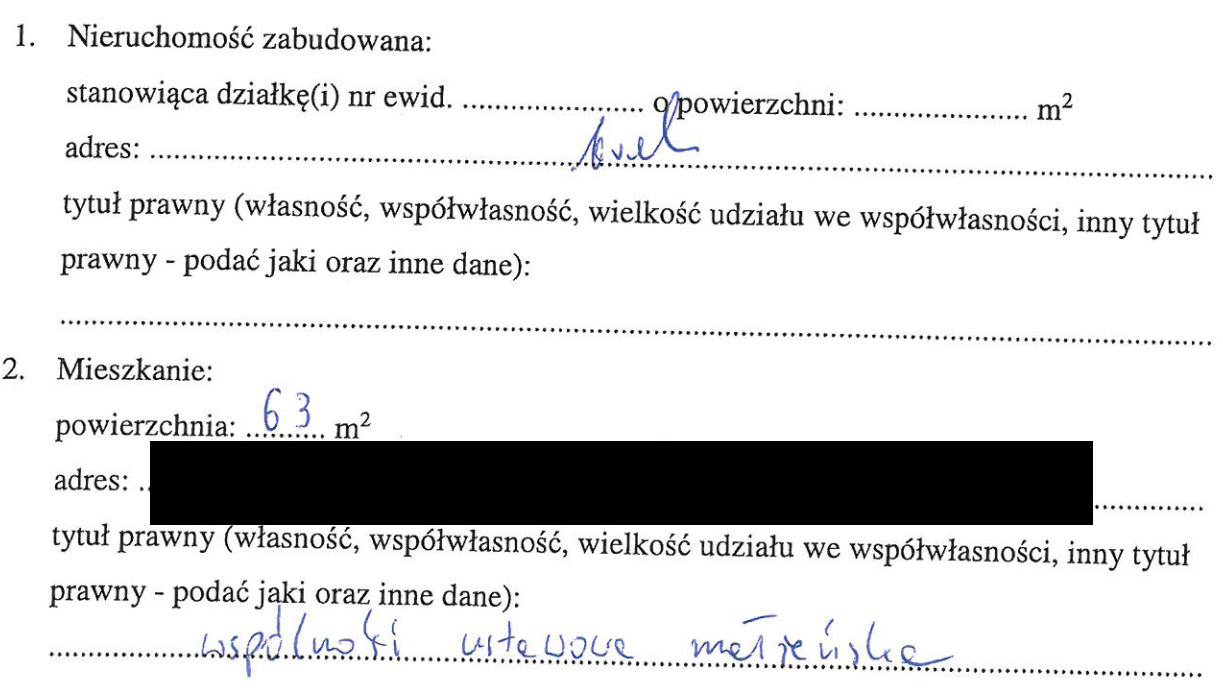 1. Nieruchomość zabudowana:
stanowiąca działkę(i) nr ewid. ...................... o powierzchni: ...................... m²
adres: ...................... brak ......................
tytuł prawny (własność, współwłasność, wielkość udziału we współwłasności, inny tytuł
prawny - podać jaki oraz inne dane):
......................
2. Mieszkanie:
powierzchnia: 63 m²
adres: ..
tytuł prawny (własność, współwłasność, wielkość udziału we współwłasności, inny tytuł
prawny - podać jaki oraz inne dane):
ustawowa małżeńska